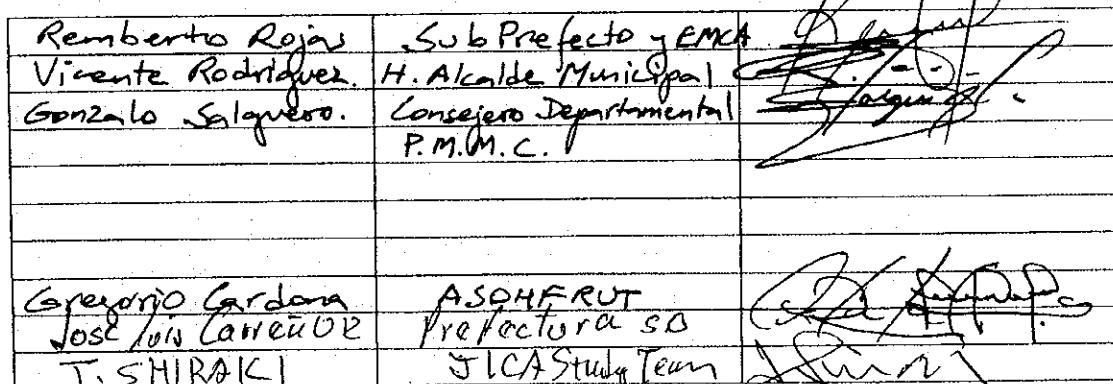 Remberto Rojas SubPrefecto y EMCA
Vicente Rodriguez. H. Alcalde Municipal
Gonzalo Salguero. Consejero Departamental
P.M.M.C.
Gregorio Cardona ASOHFRUT
José Luis Prefectura SD
T. SHIRAKI JICA Study Team